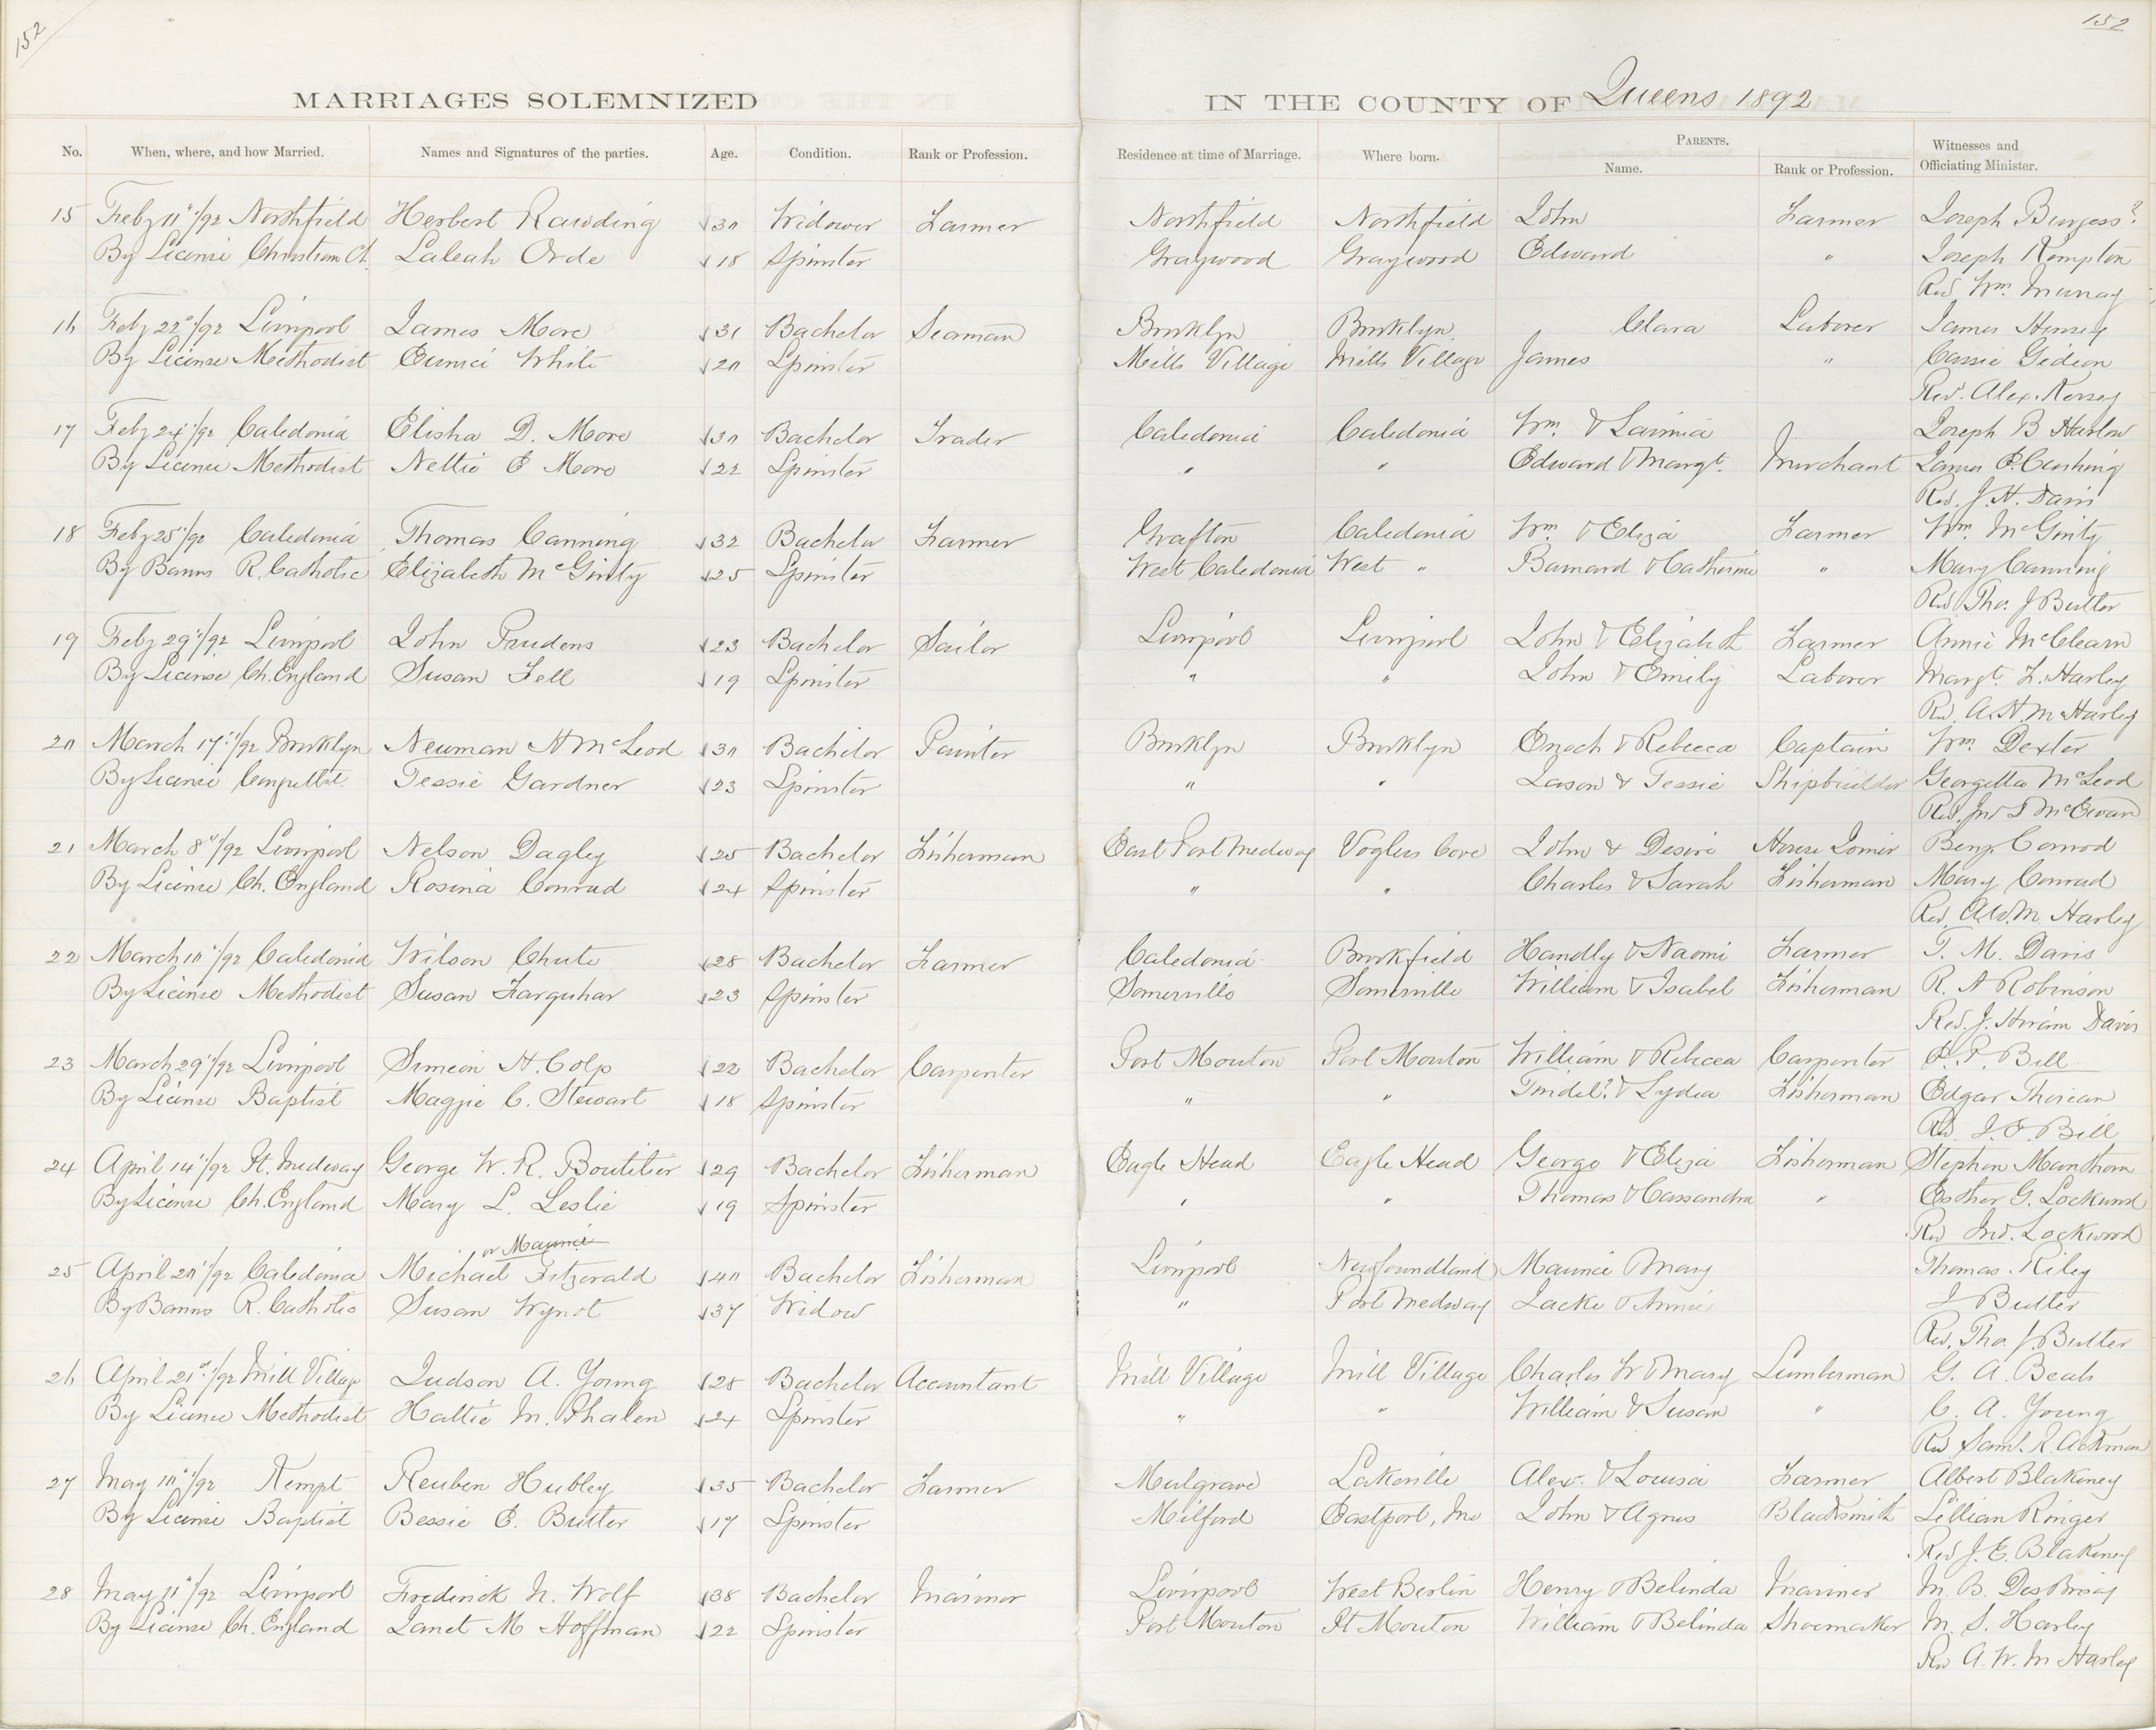 152
152
MARRIAGES SOLEMNIZED IN THE COUNTY OF Queens 1892
No. When, where, and how Married. Names and Signatures of the parties. Age. Condition. Rank or Profession. Residence at time of Marriage. Where born. PARENTS. Name. Rank or Profession. Witnesses and Officiating Minister.
15 Feby 11"/92 Northfield Herbert Rawding √30 Widower Farmer Northfield Northfield John Farmer Joseph Burgess?
By License Christian Ch. Laleah Orde √18 Spinster Graywood Graywood Edward " Joseph Kempton
Rev Wm. Murray
16 Feby 22"/92 Liverpool James More √31 Bachelor Seaman Brooklyn Brooklyn Clara Laborer James Hensey
By License Methodist Eunice White √20 Spinster Mills Village Mills Village James " Cassie Gideon
Rev. Alex.
17 Feby 24"/92 Caledonia Elisha D. More √30 Bachelor Trader Caledonia Caledonia Wm. & Lavinia Joseph B Harlow
By License Methodist Nellie E More √22 Spinster " " Edward & Margt. Merchant James E. Cushing
Rev. J. H. Davis
18 Feby 25"/92 Caledonia Thomas Canning √32 Bachelor Farmer Grafton Caledonia Wm & Eliza Farmer Wm. McGinty
By Banns R. Catholic Elizabeth McGinty √25 Spinster West Caledonia West " Barnard & Catherine " Mary Canning
Rev Tho. J Butler
19 Feby 29"/92 Liverpool John Prudens √23 Bachelor Sailor Liverpool Liverpool John & Elizabeth Farmer Annie McClearn
By License Ch. England Susan Fell √19 Spinster " " John & Emily Laborer Margt. L. Harley
Rev. A. W. M Harley
20 March 17"/92 Brooklyn Newman H McLeod √30 Bachelor Painter Brooklyn Brooklyn Enoch & Rebecca Captain Wm. Dexter
By License Tessie Gardner √23 Spinster " " Jason & Tessie Shipbuilder Georgetta McLeod
Rev. Jno McEwan
21 March 8"/92 Liverpool Nelson Dagley √25 Bachelor Fisherman East Port Medway Voglers Cove John & Desire House Joiner Benj. Conrod
By License Ch. England Rosina Conrad √24 Spinster " " Charles & Sarah Fisherman Mary Conrad
Rev. A. W. M. Harley
22 March 10"/92 Caledonia Wilson Chute √28 Bachelor Farmer Caledonia Brookfield Handly & Naomi Farmer T. M. Davis
By License Methodist Susan Farquhar √23 Spinster Somerville Somerville William & Isabel Fisherman R. A Robinson
Rev. J. Hiram Davis
23 March 29"/92 Liverpool Simeon H. Colp √22 Bachelor Carpenter Port Mouton Port Mouton William & Rebecca Carpenter Bill
By License Baptist Maggie C. Stewart √18 Spinster " " Tindel? & Lydia Fisherman Edgar
Rev. Bill
24 April 14"/92 Pt. Medway George W. R. Boutilier √29 Bachelor Fisherman Eagle Head Eagle Head George & Eliza Fisherman Stephen Manthorn
By License Ch. England Mary L. Leslie √19 Spinster " " Thomas & Cassandra " Esther G.
Rev Jno. Lockwood
or Maurice
25 April 20"/92 Caledonia Michael Fitzerald √40 Bachelor Fisherman Liverpool Newfoundland Maurice Mary Thomas Riley
By Banns R. Catholic Susan Wynot √37 Widow " Port Medway Lacke & Annie J Butler
Rev. Tho. J. Butler
26 April 21st/92 Mill Village Judson A. Young √28 Bachelor Accountant Mill Village Mill Village Charles W & Mary Lumberman G. A. Beals
By License Methodist Hattie M. Phalen √24 Spinster " " William & Susan " C. A. Young
Rev Saml. R. Ackman
27 May 10"/92 Kempt Reuben Hubley √35 Bachelor Farmer Mulgrave Lakeville Alex. & Louisa Farmer Albert Blakeney
By License Baptist Bessie E. Butler √17 Spinster Milford Eastport, Me John & Agnes Blacksmith Lillian Ringer
Rev J. E. Blakeney
28 May 11"/92 Liverpool Frederick N. Wolf √38 Bachelor Mariner Liverpool West Berlin Henry & Belinda Mariner M. B. DesBrisay
By License Ch. England Janet M Hoffman √22 Spinster Port Mouton Pt Mouton William & Belinda Shoemaker M. S. Harley
Rev A. W. M Harley